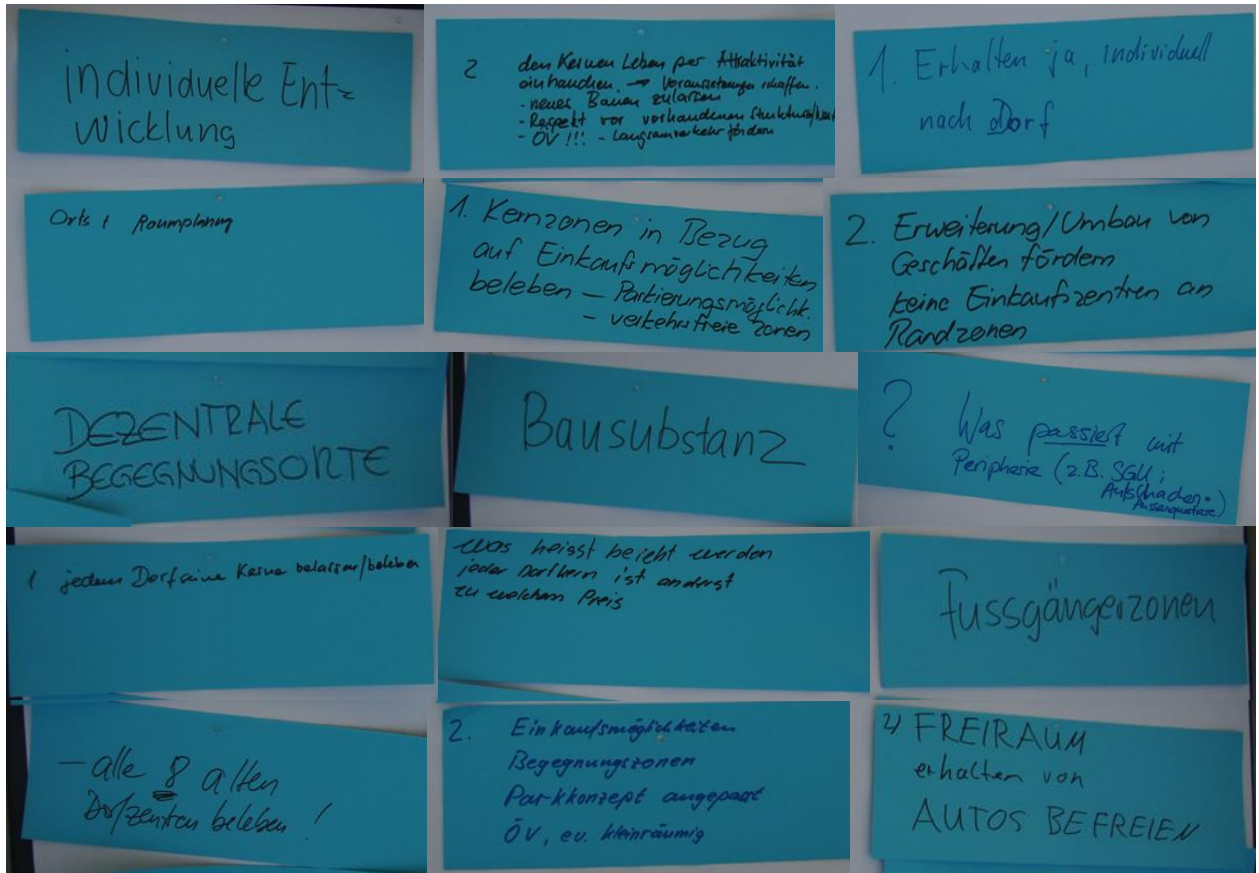 individuelle Ent=
wicklung
2 den Kernen Leben per Attraktivität
einhauchen. → Voraussetzungen schaffen.
- neues Bauen zulassen
- Respekt vor vorhandenen
- ÖV!!! - Langsamverkehr fördern
1. Erhalten ja, individuell
nach Dorf
Orts + Raumplanung
1. Kernzonen in Bezug
auf Einkaufsmöglichkeiten
beleben — Parkierungsmöglichk.
- verkehrsfreie Zonen
2. Erweiterung/Umbau von
Geschäften fördern
keine Einkaufszentren an
Randzonen
DEZENTRALE
BEGEGNUNGSORTE
Bausubstanz
? Was passiert mit
Peripherie (z.B. SGU;
1 jedem Dorf seine Kerne belassen/beleben
was heisst belebt werden
jeder Dorfkern ist anderst
zu welchem Preis
Fussgängerzonen
- alle 8 alten
Dorfzentren beleben!
2. Einkaufsmöglichkeiten
Begegnungszonen
Parkkonzept angepasst
ÖV, ev. kleinräumig
2) FREIRAUM
erhalten von
AUTOS BEFREIEN